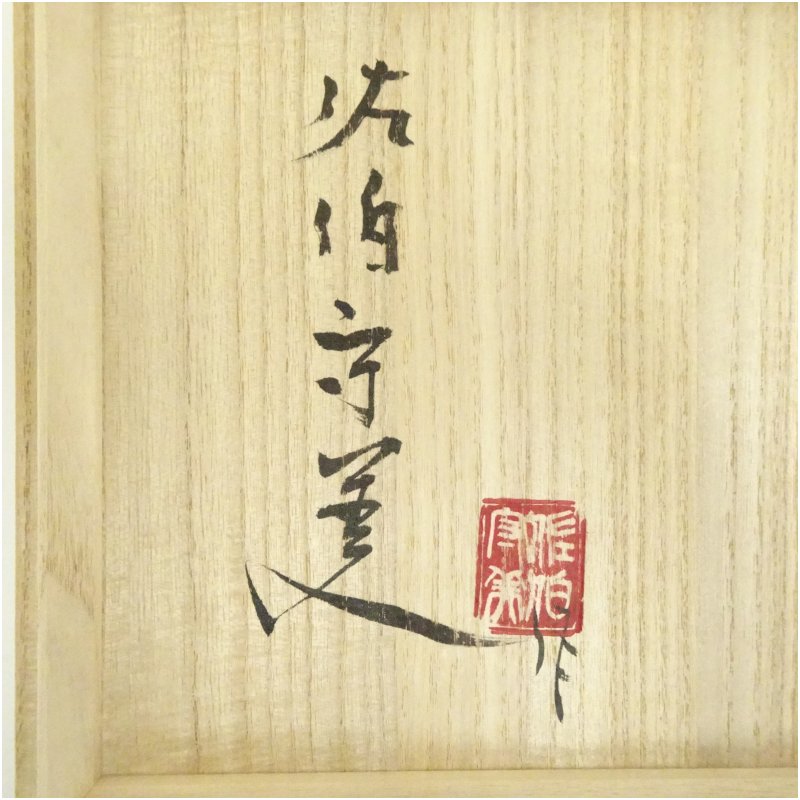 佐伯守美
作
佐伯守美